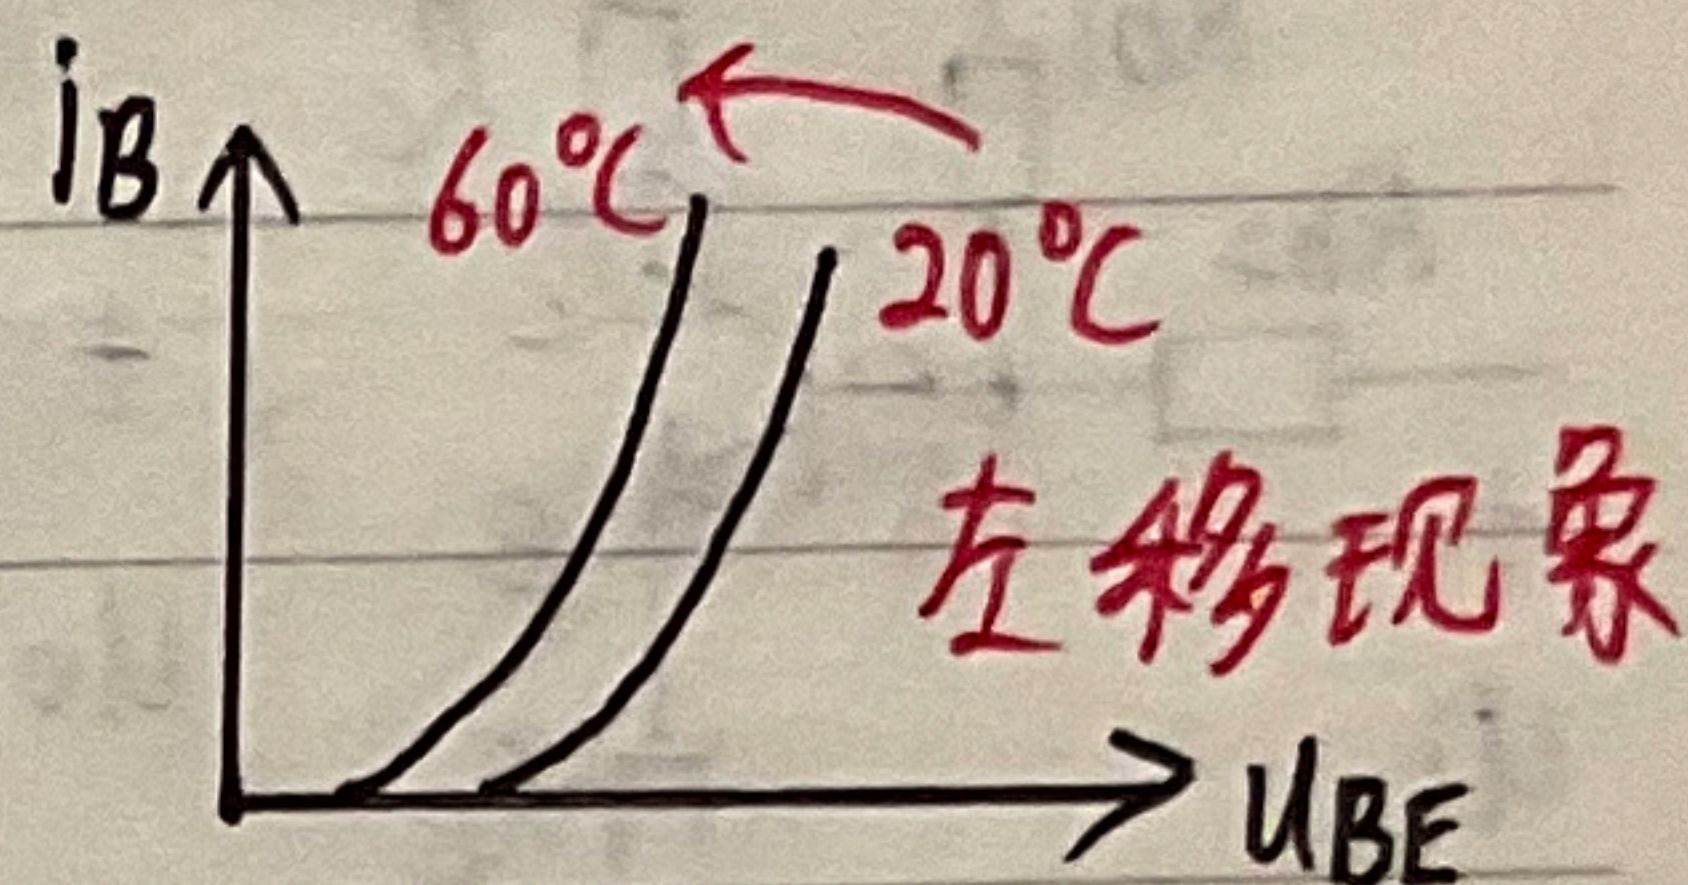 iB
60°C
20°C
左移现象
uBE